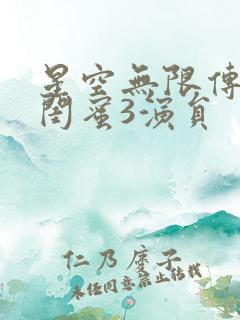 星空無限傳
閨蜜3演員
仁乃庚子
未经同意禁止转载